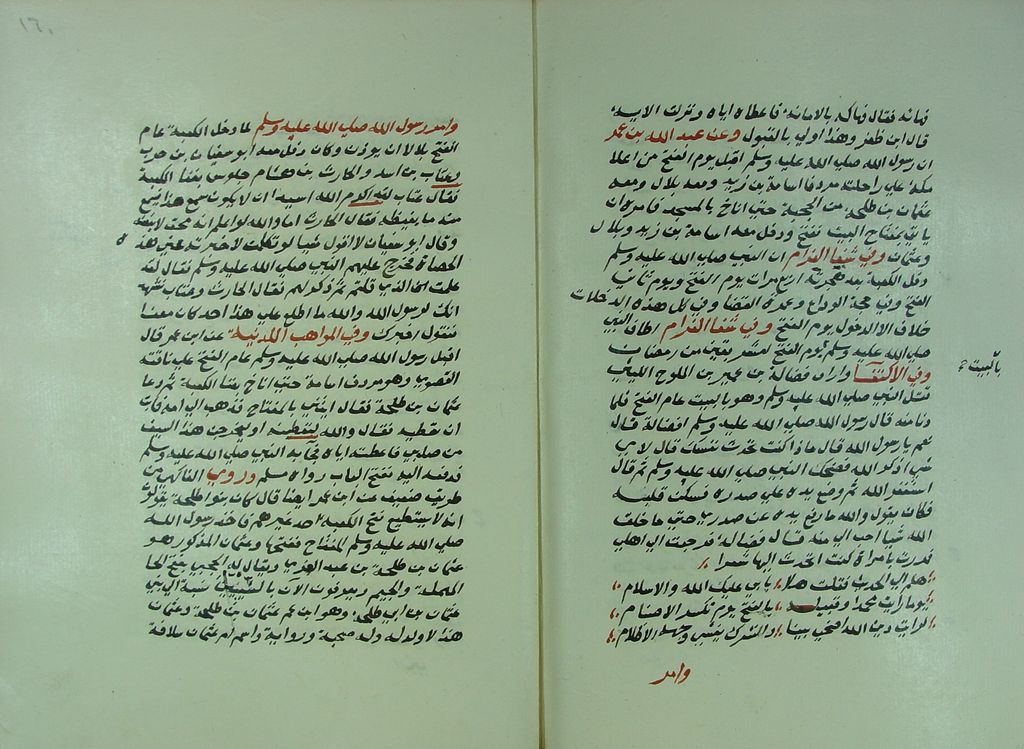 فهاته فقال هاكه بالامانة فاعطاه اياه ونزلت الاية
قال ابن ظفر وهذا اولى بالقبول وعن عبد الله بن عمر
ان رسول الله صلي الله عليه وسلم اقبل يوم الفتح من اعلا
مكة علي راحلته مردفا اسامة بن زيد ومعه بلال ومعه
عثمان بن طلحة من الحجبة حتي اناخ بالمسجد فامره ان
ياتي بمفتاح البيت ففتح ودخل معه اسامة بن زيد وبلال
وعثمان وفي شفا الغرام ان النبي صلي الله عليه وسلم
دخل الكعبة بعد هجرته اربع مرات يوم الفتح ويوم ثاني
الفتح وفي حجة الوداع وعمرة القضا وفي كل هذه الدخلات
خلاف الا الدخول يوم الفتح وفي شفا الغرام اطاف النبي
صلي الله عليه وسلم يوم الفتح لعشر بقين من رمضان
وفي الاكتفا واراد فضالة بن عمير بن الملوح الليثي
قتل النبي صلي الله عليه وسلم وهو بالبيت عام الفتح فلما
دنا منه قال رسول الله صلي الله عليه وسلم افضالة قال
نعم يا رسول الله قال ماذا كنت تحدث نفسك قال لا
شي اذكر الله فضحك النبي صلي الله عليه وسلم ثم قال
استغفر الله ثم وضع يده علي صدره فسكن قلبه
فكان يقول والله ما رفع يده عن صدري حتي ما خلق
الله شيا احب الي منه قال فضالة فرجعت الي اهلي
فمررت بامراة كنت اتحدث اليها شعرا
هلم الي الحديث فقلت هلا يابي عليك الله والاسلام
لوما رايت محمدا وقبيله بالفتح يوم تكسر الاصنام
لرايت دين الله اضحي بينا والشرك يغشي وجهه الاظلام
وامر
بالبيت
١٦٠
وامر رسول الله صلي الله عليه وسلم لما دخل الكعبة عام
الفتح بلالا ان يوذن وكان دخل معه ابو سفيان بن حرب
وعتاب بن اسد والحارث بن هشام جلوس بفنا الكعبة
فقال عتاب لقد اكرم الله اسيد ان لا يكون سمع هذا فيسمع
منه ما يغيظه فقال الحارث اما والله لو اعلم انه محق لاتبعته
وقال ابو سفيان لا اقول شيا لو تكلمت لاخبرت عني هذه
الحصاة فخرج عليهم النبي صلي الله عليه وسلم فقال لقد
علمت الذي قلتم ثم ذكر لهم فقال الحارث وعتاب نشهد
انك لرسول الله والله ما اطلع علي هذا احد كان معنا
فنقول اخبرك وفي المواهب اللدنية عن ابن عمر قال
اقبل رسول الله صلي الله عليه وسلم عام الفتح علي ناقته
القصوي وهو مردف اسامة حتي اناخ بفنا الكعبة ثم دعا
عثمان بن طلحة فقال ايتني بالمفتاح فذهب الي امه فابت
ان تعطيه فقال والله لتعطينه او ليخرجن هذا السيف
من صلبي فاعطته اياه فجا به النبي صلي الله عليه وسلم
فدفعه اليه ففتح الباب رواه مسلم وروي الفاكهي من
طريق ضعيف عن ابن عمر ايضا قال كان بنو طلحة يقولون
انه لا يستطيع فتح الكعبة احد غيرهم فاخذ رسول الله
صلي الله عليه وسلم المفتاح ففتحها وعثمان المذكور هو
عثمان بن طلحة بن عبد العزي ويقال له الحجبي بفتح الحا
المهملة والجيم ويعرفون الآن بالشيبيين نسبة الي بني
عثمان بن ابي طلحة وهو ابن عم عثمان بن طلحة وعثمان
هذا لا ولد له وله صحبة ورواية واسم ام عثمان سلافة